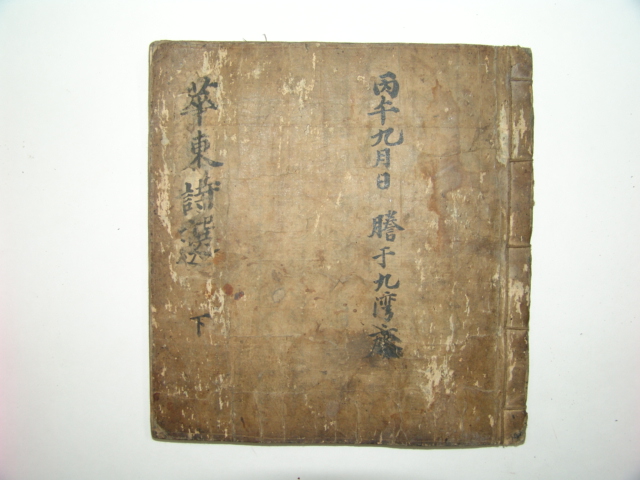 丙午九月日 謄于九灣齋
華東詩選 下